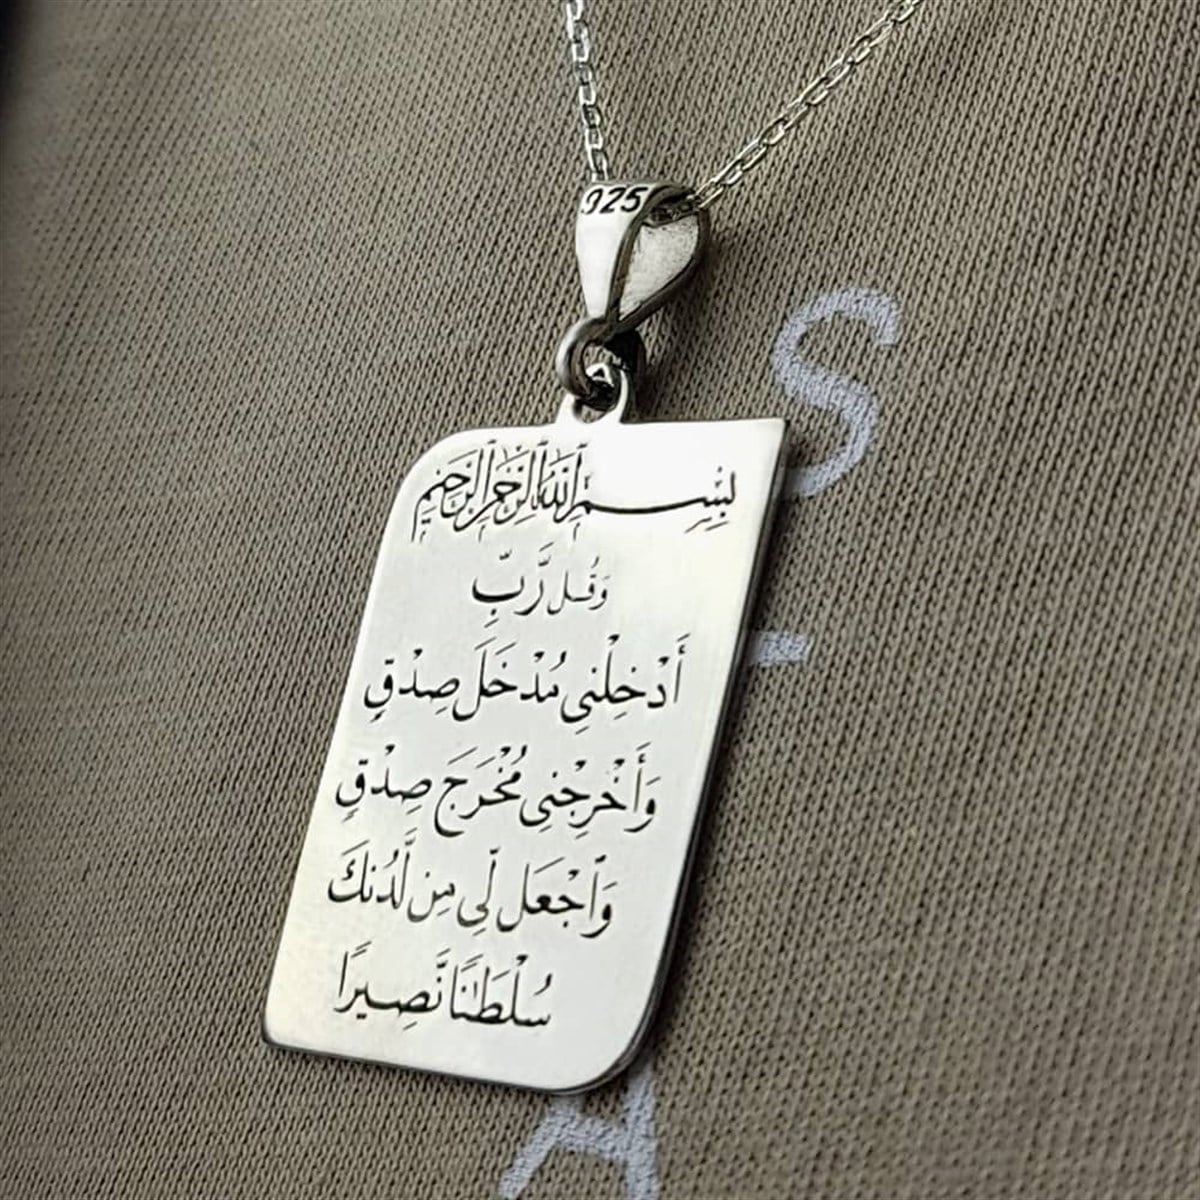 925
بِسْمِ ٱللَّهِ ٱلرَّحْمَٰنِ ٱلرَّحِيمِ
وَقُل رَّبِّ
أَدْخِلْنِي مُدْخَلَ صِدْقٍ
وَأَخْرِجْنِي مُخْرَجَ صِدْقٍ
وَٱجْعَل لِّي مِن لَّدُنكَ
سُلْطَٰنًا نَّصِيرًا
S
A